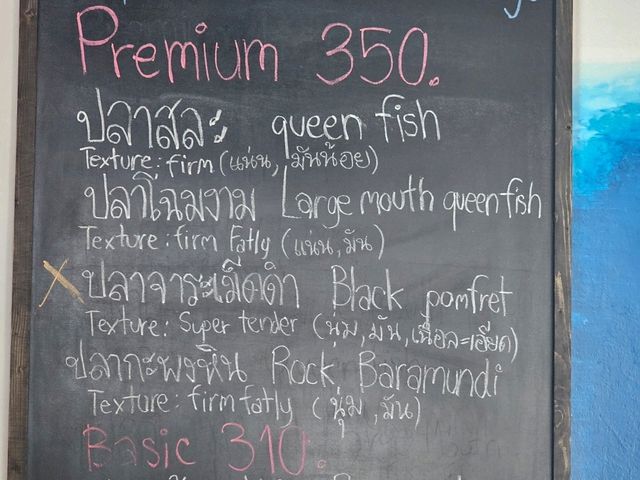 Premium 350.
ปลาสละ queen fish
Texture: firm (แน่น, มันน้อย)
ปลาโฉมงาม Large mouth queenfish
Texture: firm Fatly (แน่น, มัน)
X ปลาจาระเม็ดดำ Black pomfret
Texture: Super tender (นุ่ม, มัน, เนื้อละเอียด)
ปลากะพงหิน Rock Baramundi
Texture: firm fatly (นุ่ม, มัน)
Basic 310.